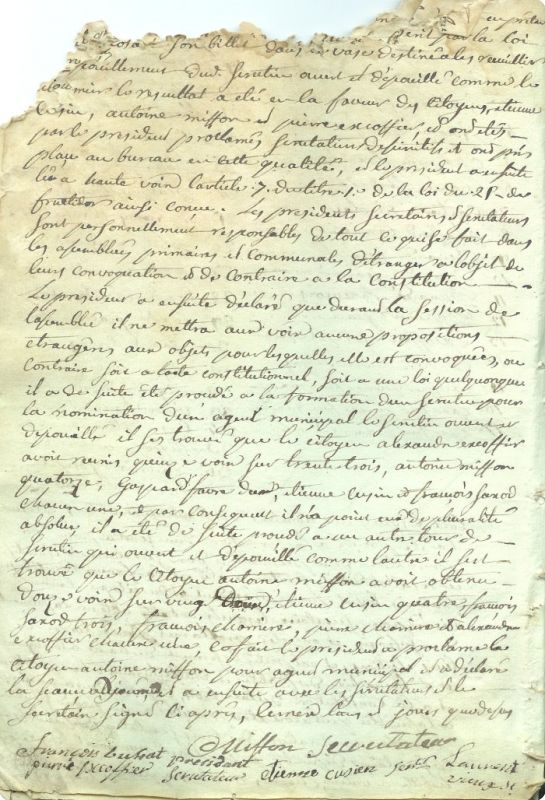 en prin
crit par la loi
et posa son billet dans un vase destiné a les receuillir
depouillement dud. scrutin ouvert et dépouillé comme le
premier le resultat a été en la faveur des citoyens, etienne
Cusin, antoine miffon et pierre excoffier, et ont étés
par le president proclamés scrutateurs definitifs et ont pris
place au bureau en cette qualité, et le president a ensuite
lu a haute voix l'article 7. du titre 1. de la loi du 25 de
fructidor ainsi conçue. Les presidents secretaires et scrutateurs
sont personnellement responsables de tout ce qui se fait dans
les assemblées primaires et communales d'étranger a l'objet de
leurs convoquation et de contraire a la Constitution
Le president a ensuite déclaré que durant la session de
l'assemblée il ne mettra aux voix aucune propositions
etrangères aux objets pour lesquelles elle est convoquées, ou
Contraire soit a l'acte constitutionnel, soit a une loi quelquonque
il a de suite été proudé a la formation d'un scrutin pour
la nomination d'un agent municipal le scrutin ouvert et
depouillé il s'est trouvé que le citoyen alexandre excoffier
avoit reunis quinze voix sur trente trois, antoine miffon
quatorze, Gaspard favre etienne cusin et françois saxod
chacun une, et par consequent il n'a point eu de pluralité
absolue, il a été de suite proudé a un autre tour de
scrutin qui ouvert et dépouillé comme l'autre il s'est
trouvé que le Citoyen antoine miffon avoit obtenu
douze voix sur vingt etienne cusin quatre françois
saxod trois, françois charriere, pierre charriere et alexandre
excoffier chacun une, ce fait le president a proclamé le
Citoyen antoine miffon pour agent municipal et a déclaré
la sceance et a ensuite avec les scrutateurs et le
secretaire signé ci après, lesmêmes ans et jours que dessus
Miffon Secrutateur
françois bussat president
pierre Excoffier scrutateur etienne cusien scrtr Laurent